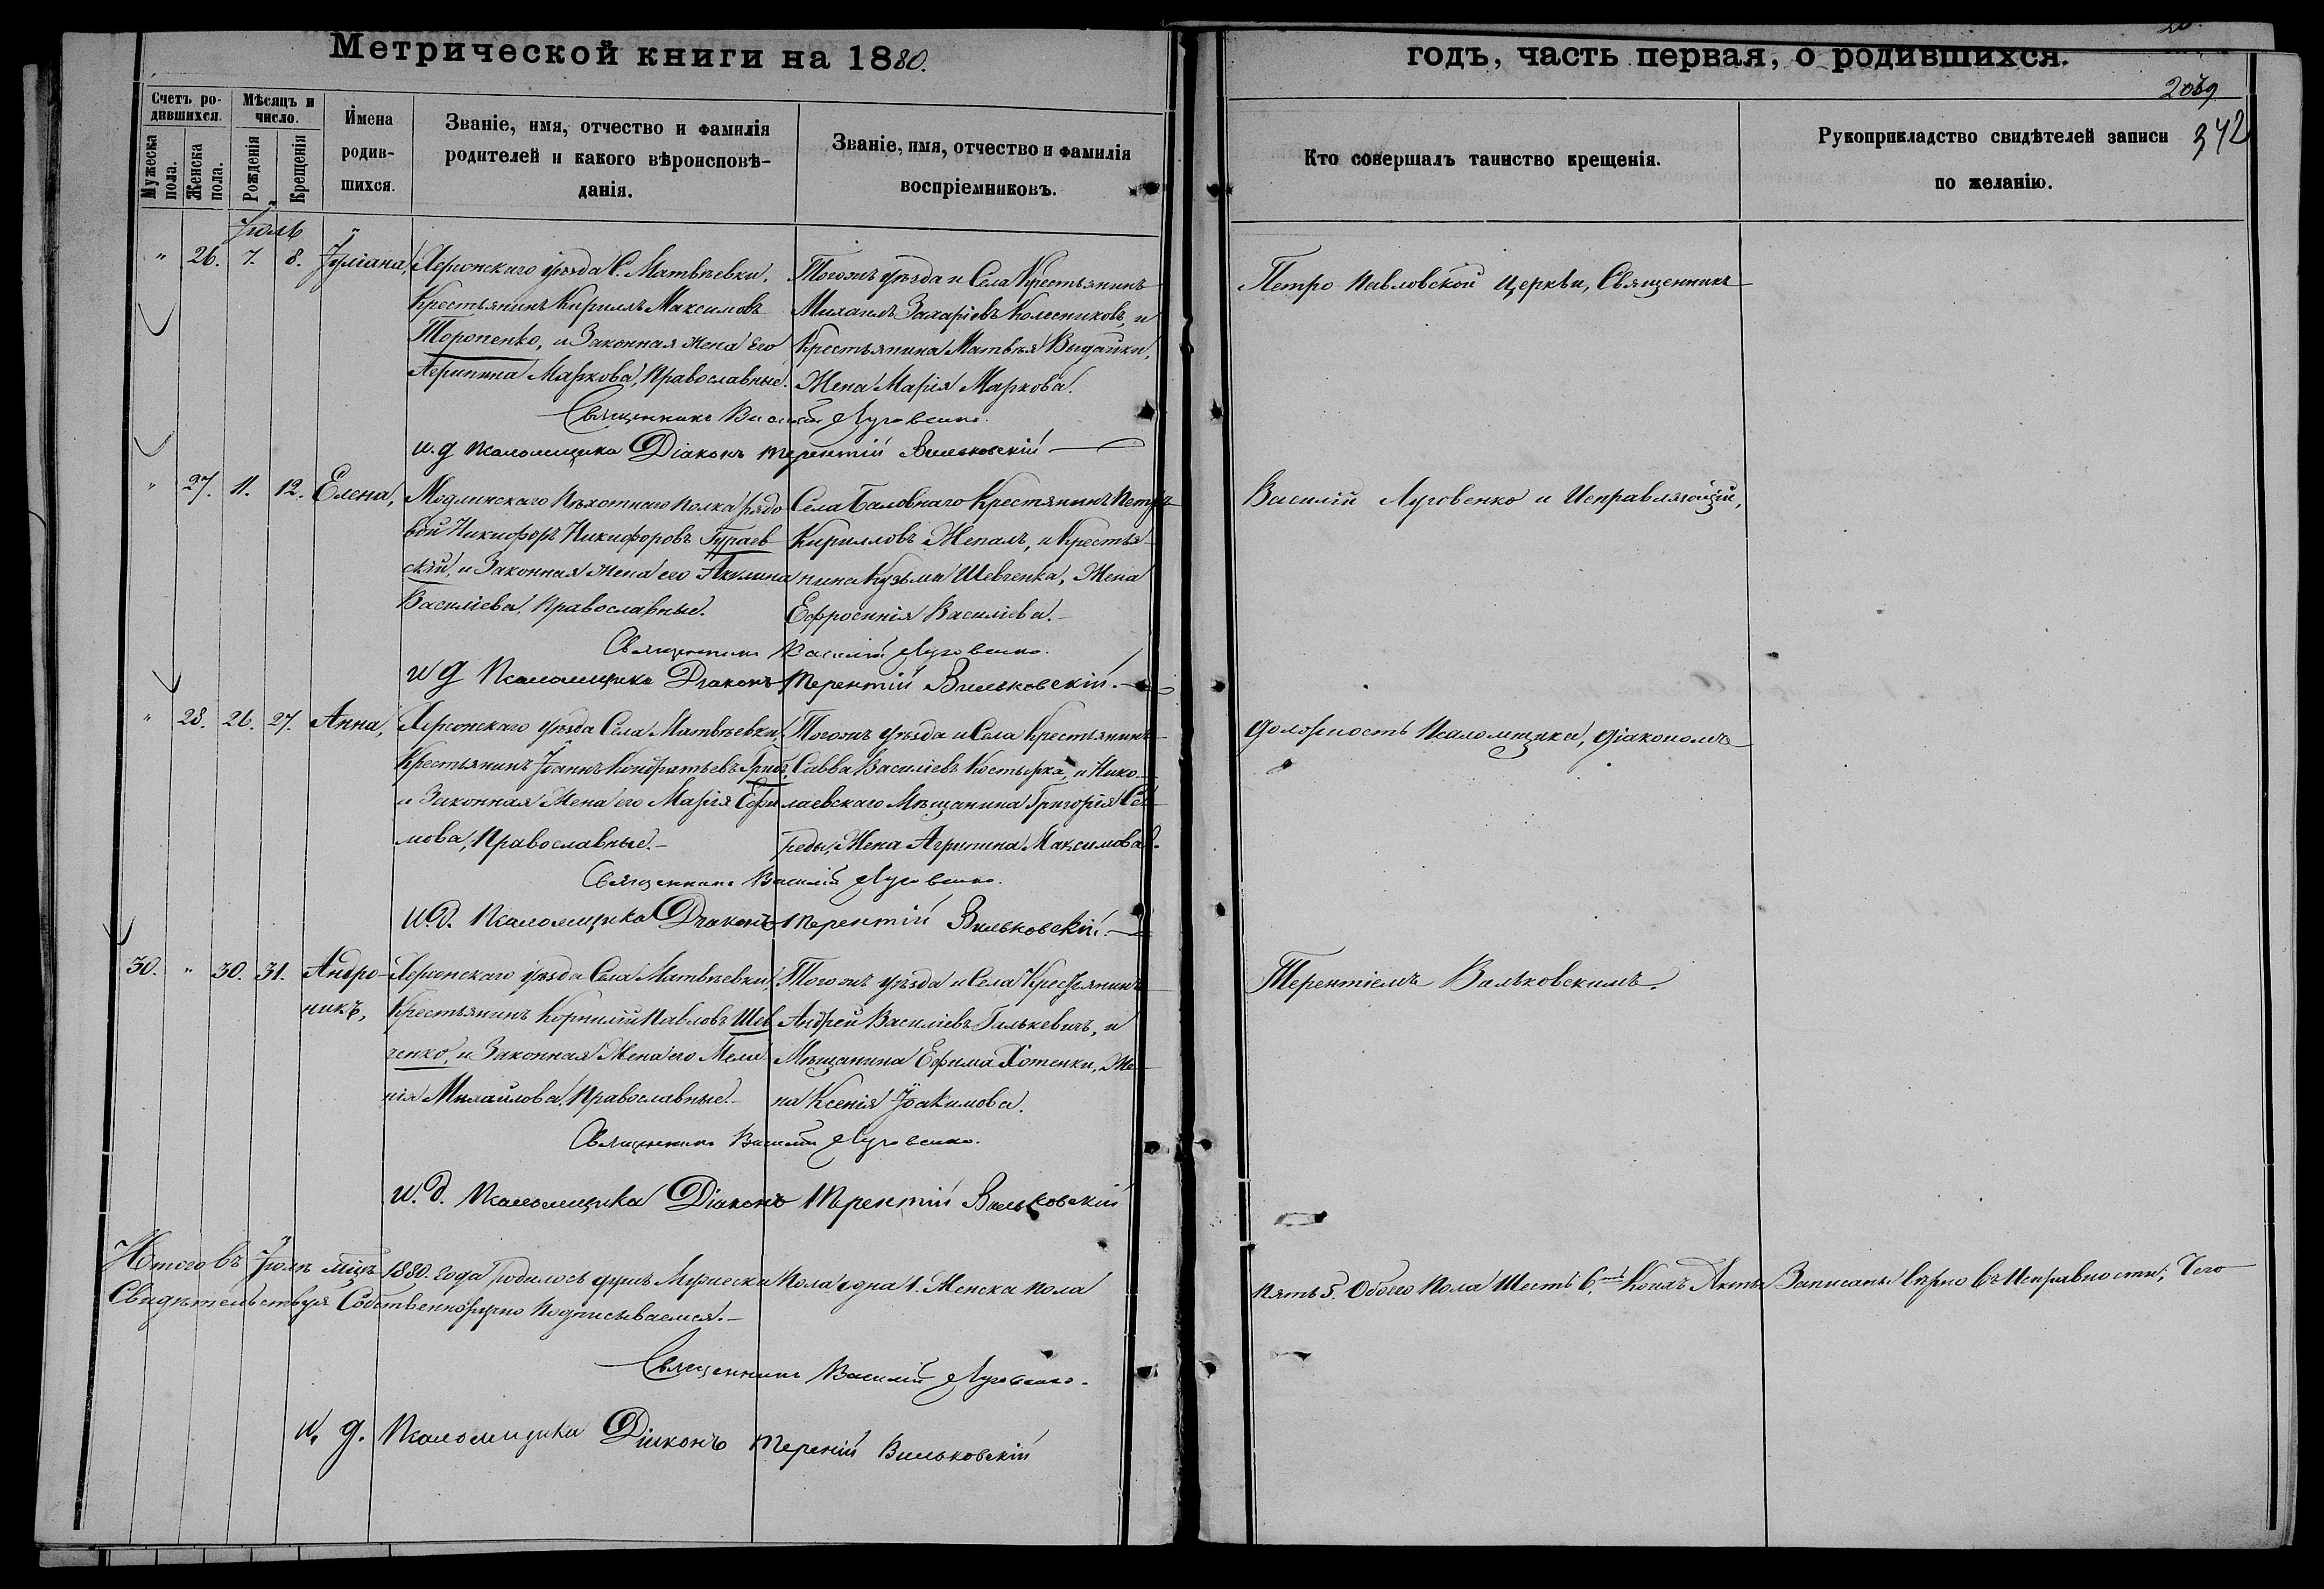 Метрической книги на 1880.
Счетъ ро-
дившихся.
Мужеска пола.
Женска пола.
Мѣсяцъ и
число.
Рожденія
Крещенія
Имена
родив-
шихся.
Званіе, имя, отчество и фамилія
родителей и какого вѣроисповѣ-
данія.
Званіе, имя, отчество и фамилія
воспріемниковъ.
Іюль
" 26. 7. 8. Іуліана,
Херсонскаго уѣзда С. Матвѣевки,
Крестьянинъ Кириллъ Максимовъ
Торопенко, и Законная жена Его
Агрипина Маркова, Православные.
Тогожъ уѣзда и Села Крестьянинъ
Михаилъ Захаріевъ Колесниковъ, и
Крестьянина Матвѣя Выдайки,
Жена Марія Маркова.
Священникъ Василій Луговенко.
и. д Псаломщика Діаконъ Терентій Вильковскій
" 27. 11. 12. Елена,
Модлинскаго Пѣхотнаго полка рядо
вой Никифоръ Никифоровъ Гураев
скій, и Законная жена его Акилина
Василіева, Православные.
Села Баловнаго Крестянинъ Петръ
Кирилловъ Жепалъ, и Крестья
нина Кузьмы Шевченка, Жена
Ефросинія Василіева.
Священникъ Василій Луговенко.
и д Псаломщика Діаконъ Терентій Вильковскій.
" 28. 26. 27. Анна,
Херсонскаго уѣзда Села Матвѣевки,
Крестьянинъ Іоаннъ Кондратьевъ Грибъ,
и Законная Жена его Марія Ефи
мова, Православные.
Тогожъ уѣзда и Села Крестьянинъ
Савва Василіевъ Костырка, и Нико-
лаевскаго Мѣщанина Григорія Се
реды, Жена Агрипина Максимова.
Священникъ Василій Луговенко.
и. д. Псаломщика Діаконъ Терентій Вильковскій.
30. " 30. 31. Андро-
никъ,
Херсонскаго уѣзда Села Матвѣевки,
Крестьянинъ Корнилій Павловъ Шев
ченко, и Законная Жена его Мела
нія Михайлова, Православные.
Тогожъ уѣзда и Села Крестьянинъ
Андрей Василіевъ Галькевичъ, и
Мѣщанина Ефима Хотенки, Же-
на Ксенія Іоакимова.
Священникъ Василій Луговенко.
и. д. Псаломщика Діаконъ Терентій Вильковскій
Итого въ Іюлѣ мцѣ 1880. года родилось душъ Мужеска Пола одна 1. Женска пола
Свидѣтельствуя Собственноручно Подписываемся.
Священникъ Василій Луговенко.
и, д. Псаломщика Діаконъ Тереній Вильковскій
годъ, часть первая, о родившихся.
342
Кто совершалъ таинство крещенія.
Рукоприкладство свидѣтелей записи
по желанію.
Петро Павловской Церкви, Священникъ
Василій Луговенко и Исправляющій,
должность Псаломщика, діакономъ
Терентіемъ Вильковскимъ.
Пять 5. Обоего Пола Шесть 6. Акты Записаны вѣрно въ Исправности; Чего